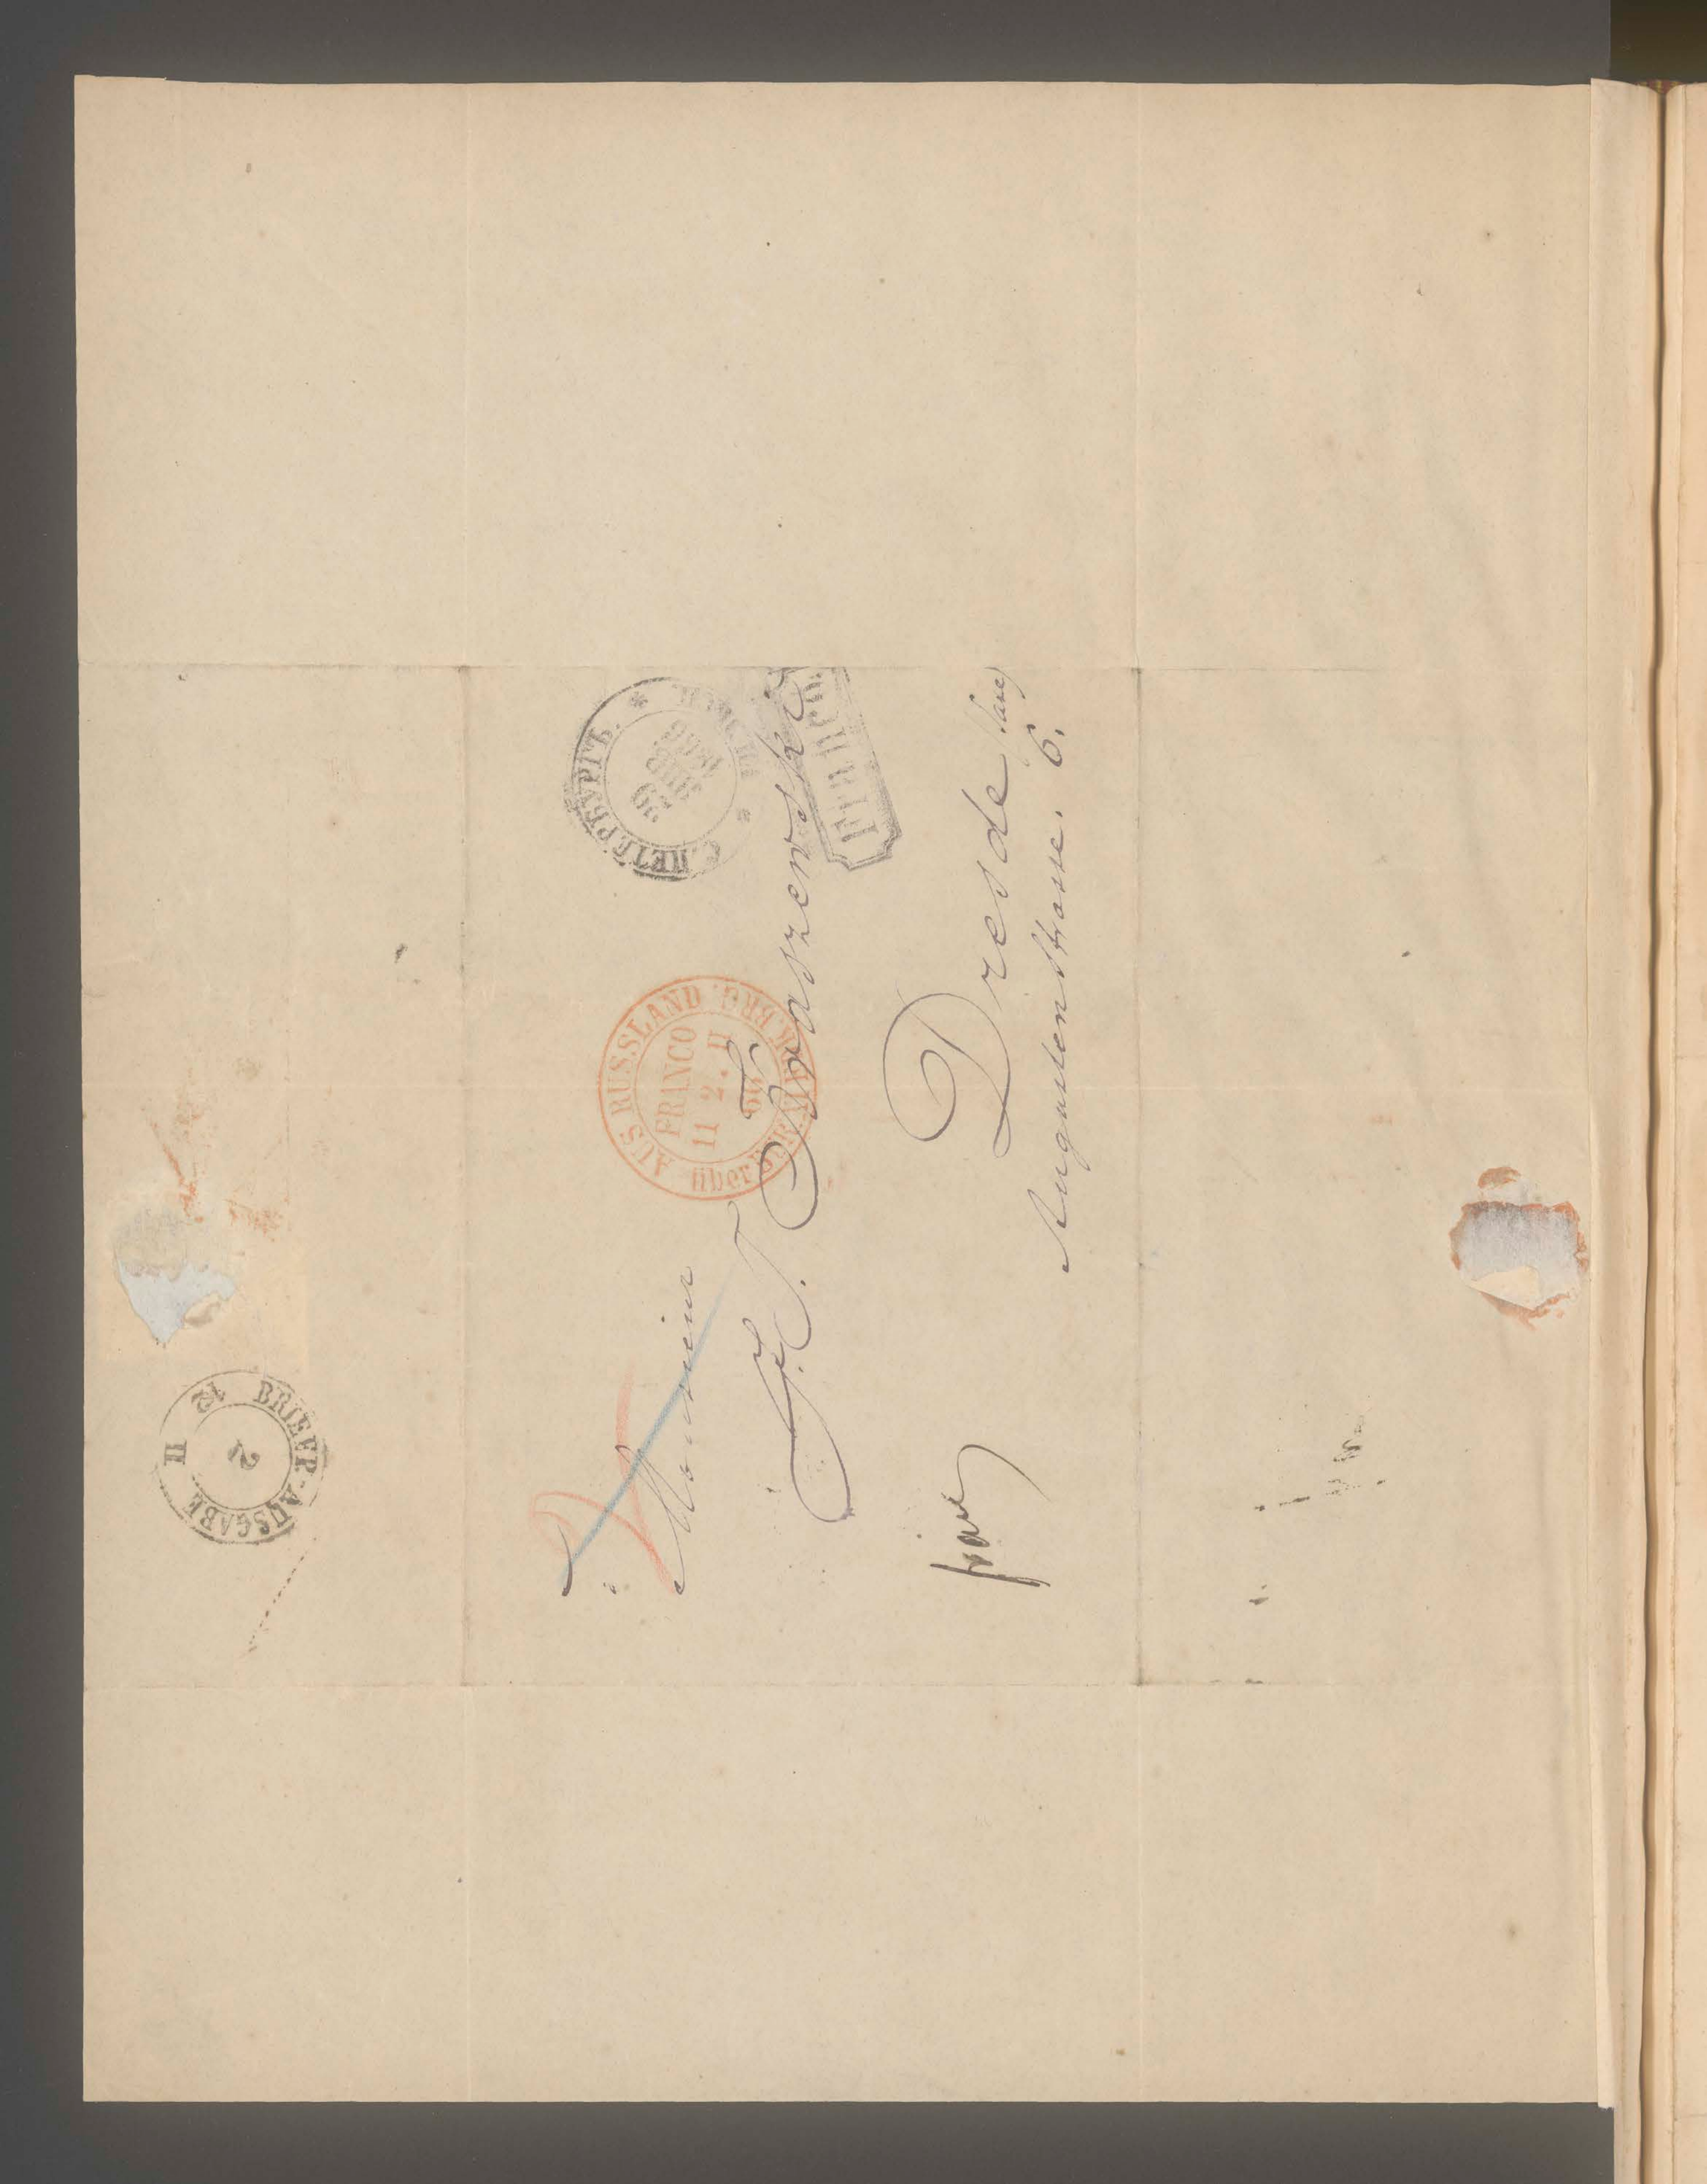 Monsieur
J. J. Kraszewski
Dresde (Saxe)
Augustenstrasse. 6.
franco
С.ПЕТЕРБУРГЪ.
AUS RUSSLAND
FRANCO
11 2. II
über BRG.
Franco.
BRIEF-AUSGABE
12 II
2